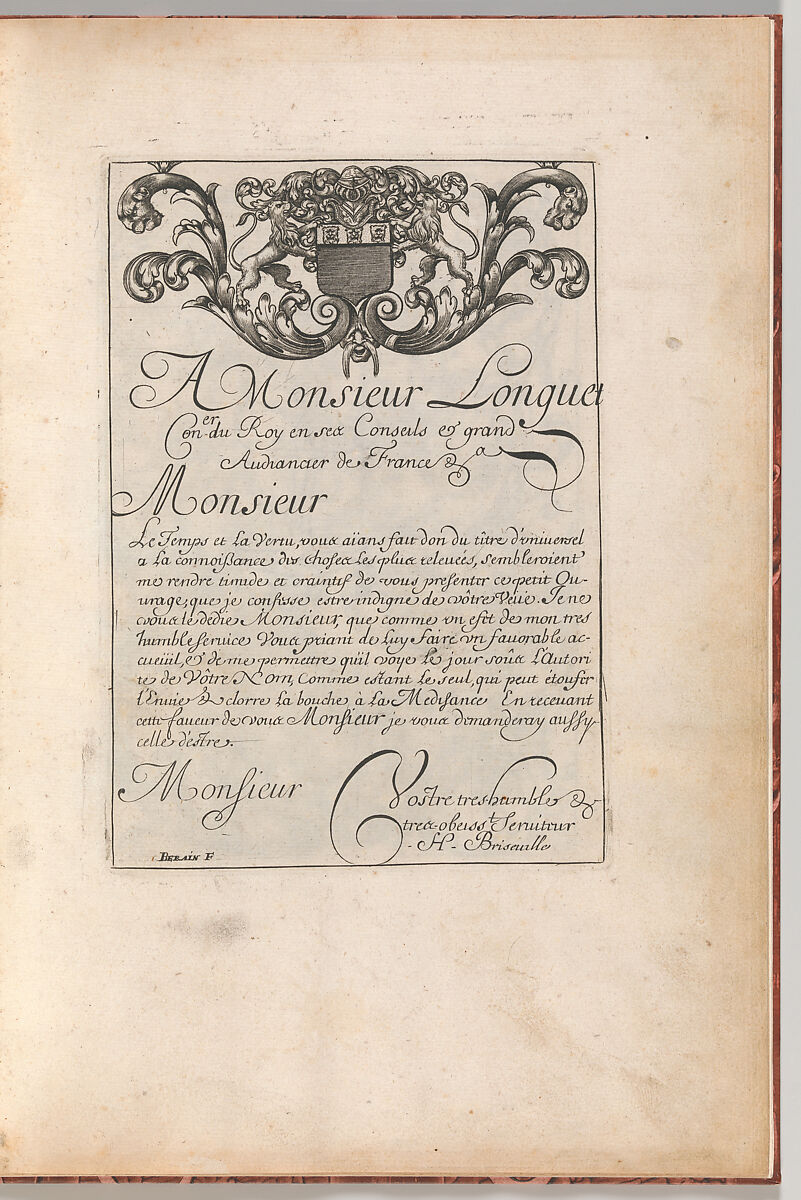 A Monsieur Longuet
Con.er du Roy en ses Conseils et grand
Audiancier de France &a
Monsieur
Le Temps et la Vertu, vous aïans fait don du tître d'vniversel
a la connoissance des choses les plus releueés, sembleroient
me rendre timide et craintif de vous presenter ce petit Ou-
urage, que je confesse estre indigne de vôtre Veüe. Je ne
vous le dedie Monsieur, que comme vn efét de mon tres
humble service Vous priant de luy faire vn fauorable ac-
cueüil, et de me permettre qu'il voye le jour soûs l'Autori
te de Vôtre Nom, Comme estant le seul, qui peut étoufer
l'Enuie & clorre la bouche à la Medisance En receuant
cette faueur de vous Monsieur je vous demanderay aussy
celle d'estre.
Monsieur
Vostre tres-humble &
tres-obeiss.t Seruiteur
- H - Briseuille
Berain F